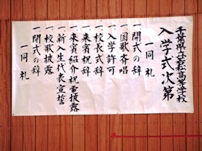 千葉県立松高等学校
入学式次第
一同礼
一開式の辞
一国歌斉唱
一入学許可
一校長式辞
一来賓祝辞
一来賓紹介祝電披露
一新入生代表宣誓
一校歌披露
一閉式の辞
一同礼